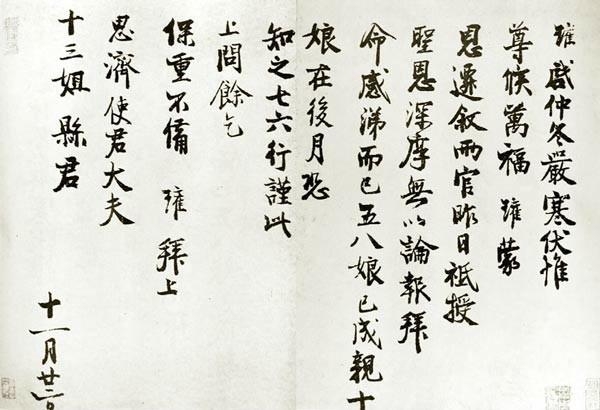 雍啓仲冬嚴寒伏惟
尊候萬福雍蒙
恩遷叙兩官昨日祗授
聖恩深厚無以論報拜
命感涕而已五八娘已成親十
娘在後月恐
知之七六行謹此
上問餘乞
保重不備 雍 拜上
思濟使君大夫
十三姐縣君
十一月廿二日